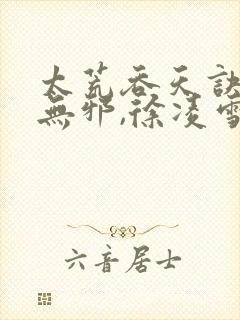 太荒吞天訣
無邪,徐淩雪
六音居士